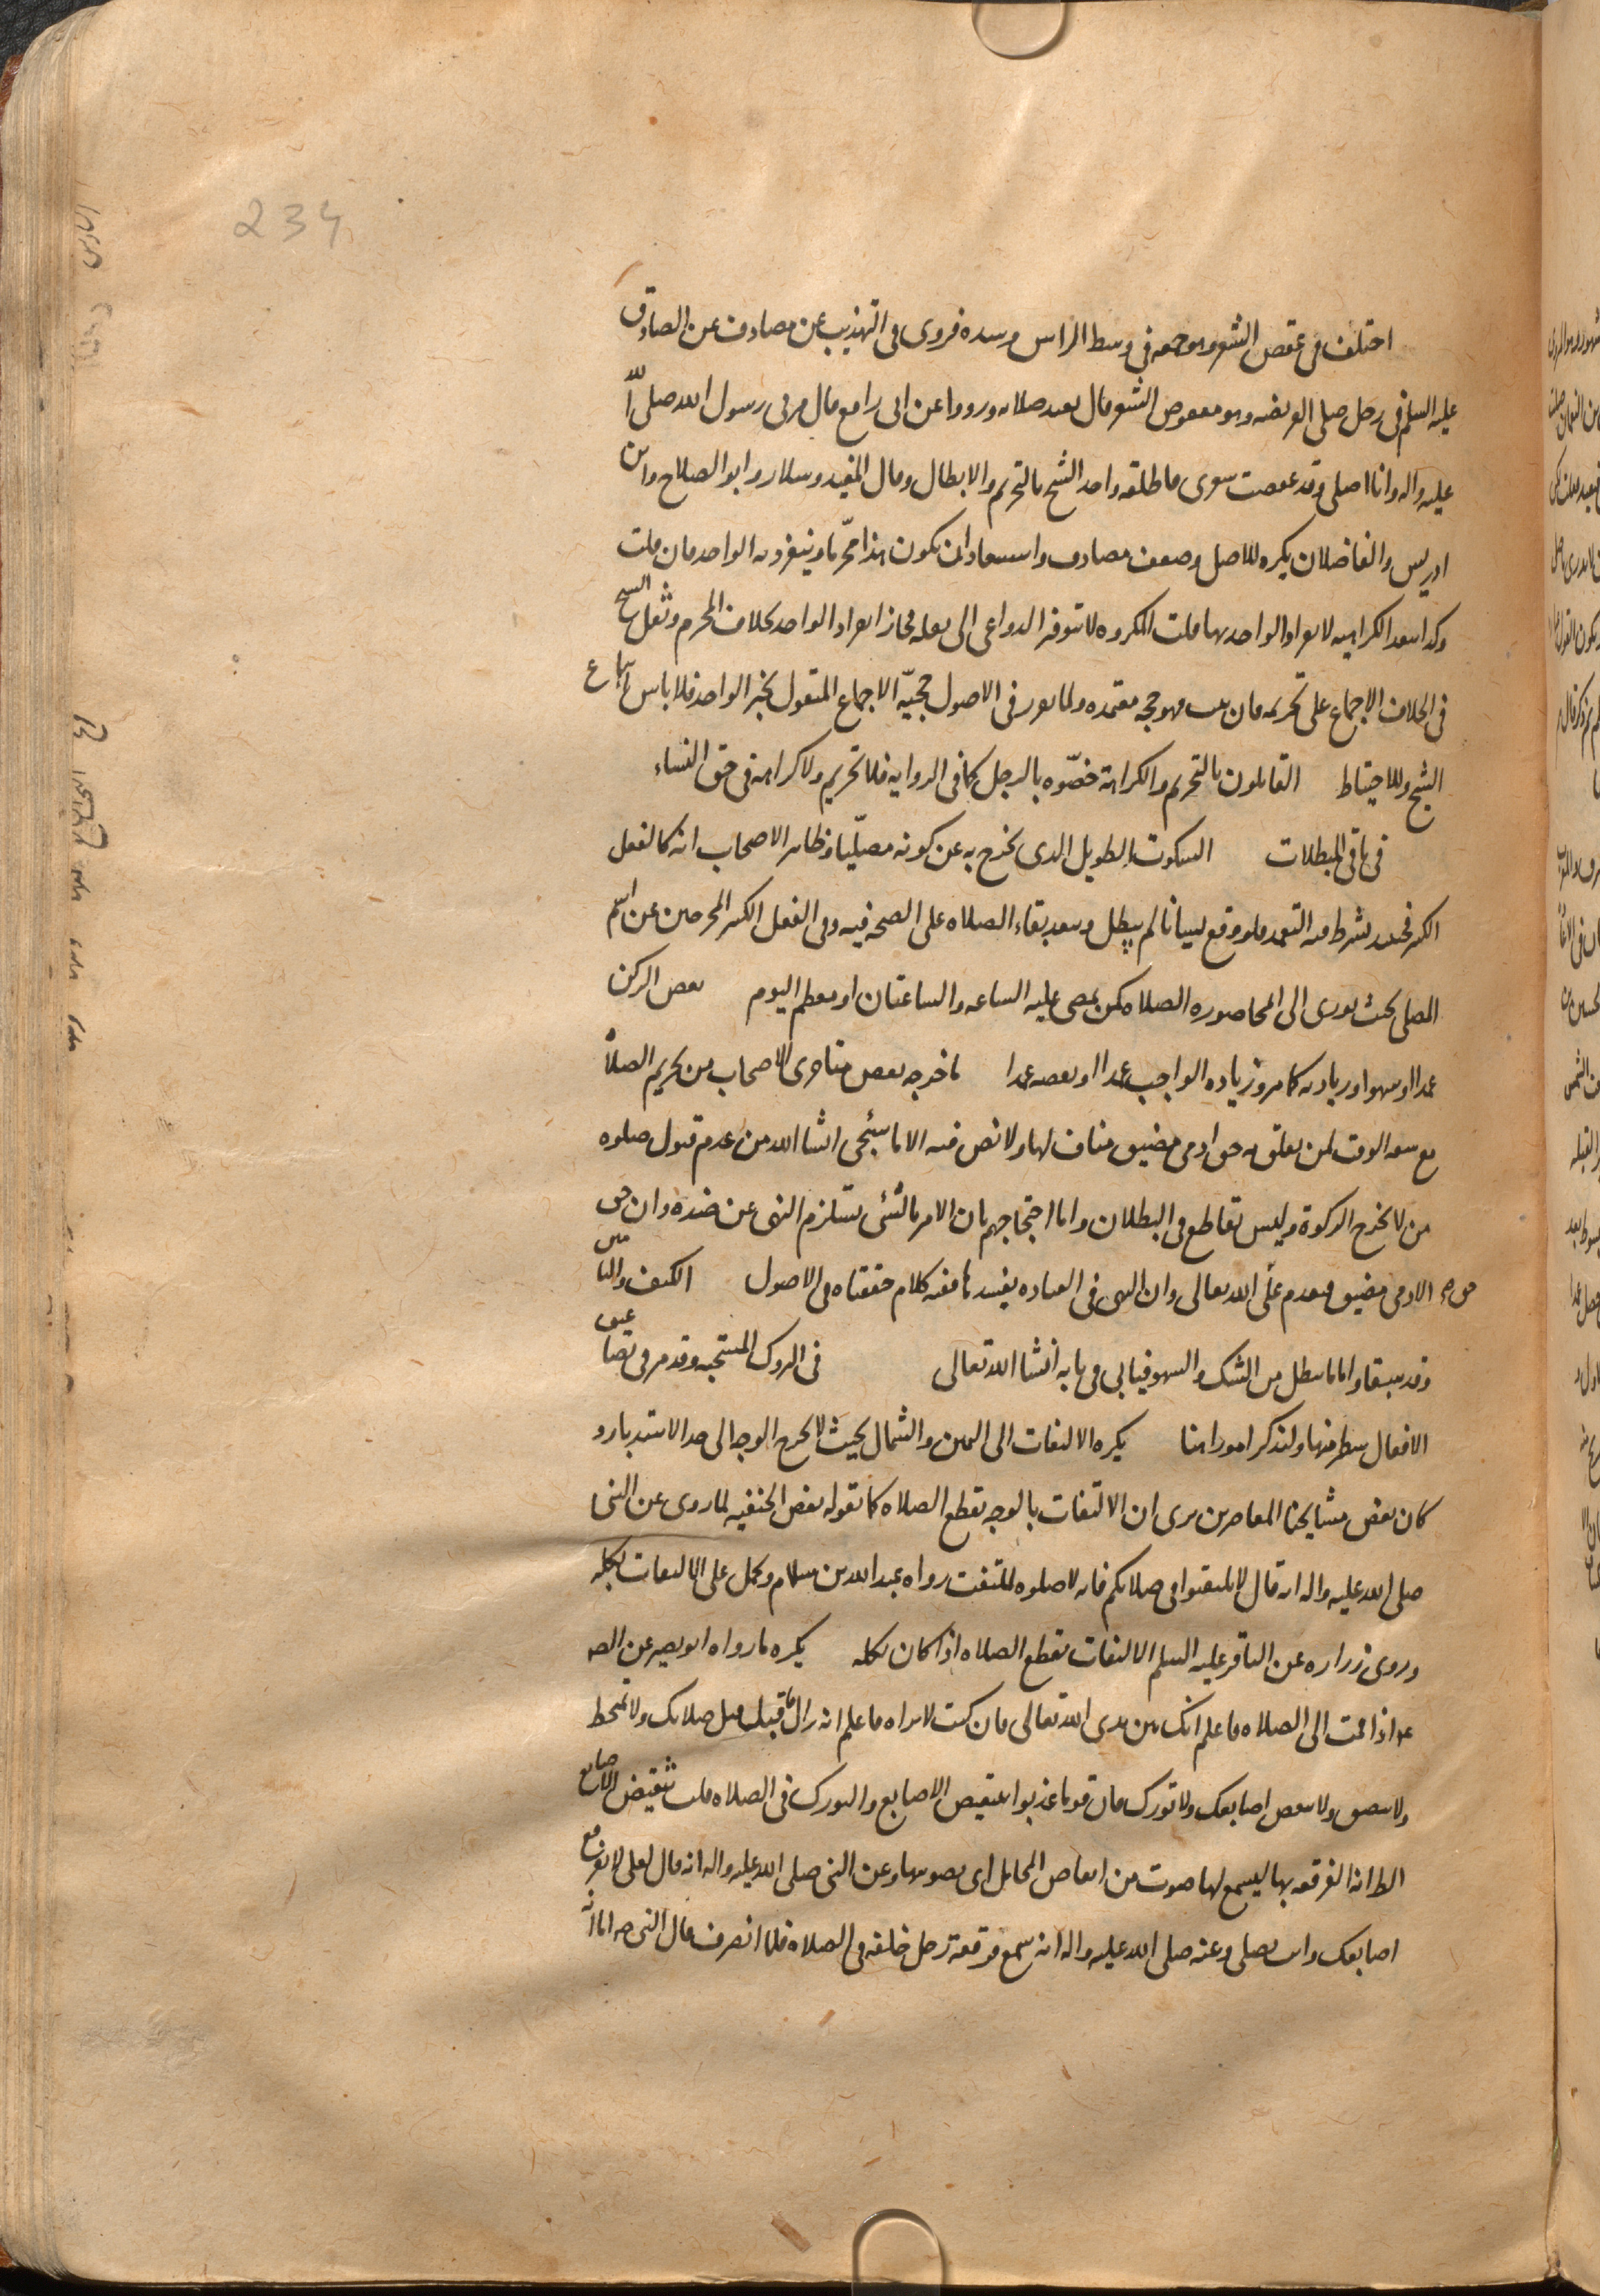 234
اختلف فى عقص الشعر وهو جمعه فى وسط الراس وسده فروى فى التهذيب عن مصادف عن الصادق
عليه السلم فى رجل صلى الفريضه وهو معقوص الشعر قال يعيد صلاته ورووا عن ابى رافع قال مر بى رسول الله صلى الله
عليه واله وانا اصلى وقد عقصت شعرى فاطلقه واحد الشيخ بالتحريم والابطال وقال المفيد وسلار وابو الصلاح وابن
ادريس والفاضلان يكره للاصل وضعف مصادف واستبعاد ان يكون هذا محرّما وينفرد به الواحد فان قلت
وكدا سعد الكراهيه لانفراد الواحد بها قلت المكروه لا تتوفر الدواعى الى نقله فجاز انفراد الواحد بخلاف المحرم ونقل الشيخ
فى الخلاف الاجماع على تحريمه فان ثبت فهو حجه معتمده ولما تقرر فى الاصول حجيّة الاجماع المنقول بخبر الواحد فلا باس باتباع
الشيخ وللاحتياط القائلون بالتحريم والكراهة خصّوه بالرجل كما فى الروايه فلا تحريم ولا كراهة فى حق النساء
فى باقى المبطلات السكوت الطويل الدى يخرج به عن كونه مصلّيا وظاهر الاصحاب انه كالفعل
الكثير فحينئذ يشترط فيه التعمد فلو وقع نسيانا لم يبطل وبعد بقاء الصلاه على الصحه فيه وفى الفعل الكثير المخرجين عن اسم
المصلى بحيث يودى الى انمحا صوره الصلاه كمن يمضى عليه الساعه والساعتان او معظم اليوم نقص الركن
عمدا او سهوا وزيادته كما مر وزياده الواجب عمدا او نقصه عمدا ما خرجه بعض متاخرى الاصحاب من تحريم الصلاة
مع سعه الوقت لمن تعلق به حق ادمى مضيق مناف لها ولا نص فيه الا ما سيجى انشا الله من عدم قبول صلوه
من لا يخرج الزكوة وليس بقاطع فى البطلان واما احتجاجهم بان الامر بالشئ يستلزم النهى عن ضده وان حق
الادمى مضيق فيقدم على الله تعالى وان النهى فى العباده يفسدها ففيه كلام حققناه فى الاصول الكتف والتامين
وقد سبقا واما ما يبطل من الشك والسهو فياتى فى بابه انشا الله تعالى فى التروك المستحبه وقد مر فى تضاعيف
الافعال سطر منها ولنذكر امورا هنا يكره الالتفات الى اليمين والشمال بحيث لا يخرج الوجه الى حد الاستدبار و
كان بعض مشايخنا المعاصرين يرى ان الالتفات بالوجه يقطع الصلاه كما تقوله بعض الحنفيه لما روى عن النبى
صلى الله عليه واله انه قال لا تلتفتوا فى صلاتكم فانه لا صلوه لملتفت رواه عبد الله بن سلام ويحمل على الالتفات بكله
وروى زراره عن الباقر عليه السلم الالتفات يقطع الصلاه اذا كان بكله يكره ما رواه ابو بصير عن الصه
عه اذا قمت الى الصلاه فاعلم انك بين يدى الله تعالى فان كنت لا تراه فاعلم انه يراك فاقبل قبل صلاتك ولا تمتخط
ولا تبصق ولا تنقض اصابعك ولا تورك فان قوما عذبوا بتنقيض الاصابع والتورك فى الصلاه قلت تنقيض الاصابع
الظ انه الفرقعه بها ليسمع لها صوت من انقاض المحامل اى صوتها وعن النبى صلى الله عليه واله انه قال لعلى لا تفرقع
اصابعك وانت تصلى وعنه صلى الله عليه واله انه سمع فرقعة رجل خلفه فى الصلاه فلما انصرف قال النبى صه اما انه